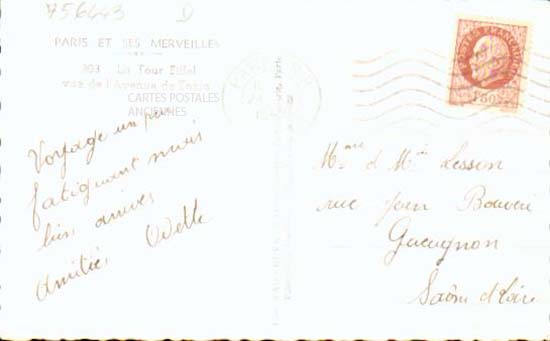 756443 D
PARIS ET SES MERVEILLES
203 La Tour Eiffel
vue de l'Avenue de Tokio
CARTES POSTALES
ANCIENNES
Voyage un peu
fatiguant mais
bien arrivés
Amitiés, Odette
POSTES FRANÇAISES
1F50
Mme et Mr Lesson
rue Jean Bouveri
Gueugnon
Saône et Loire